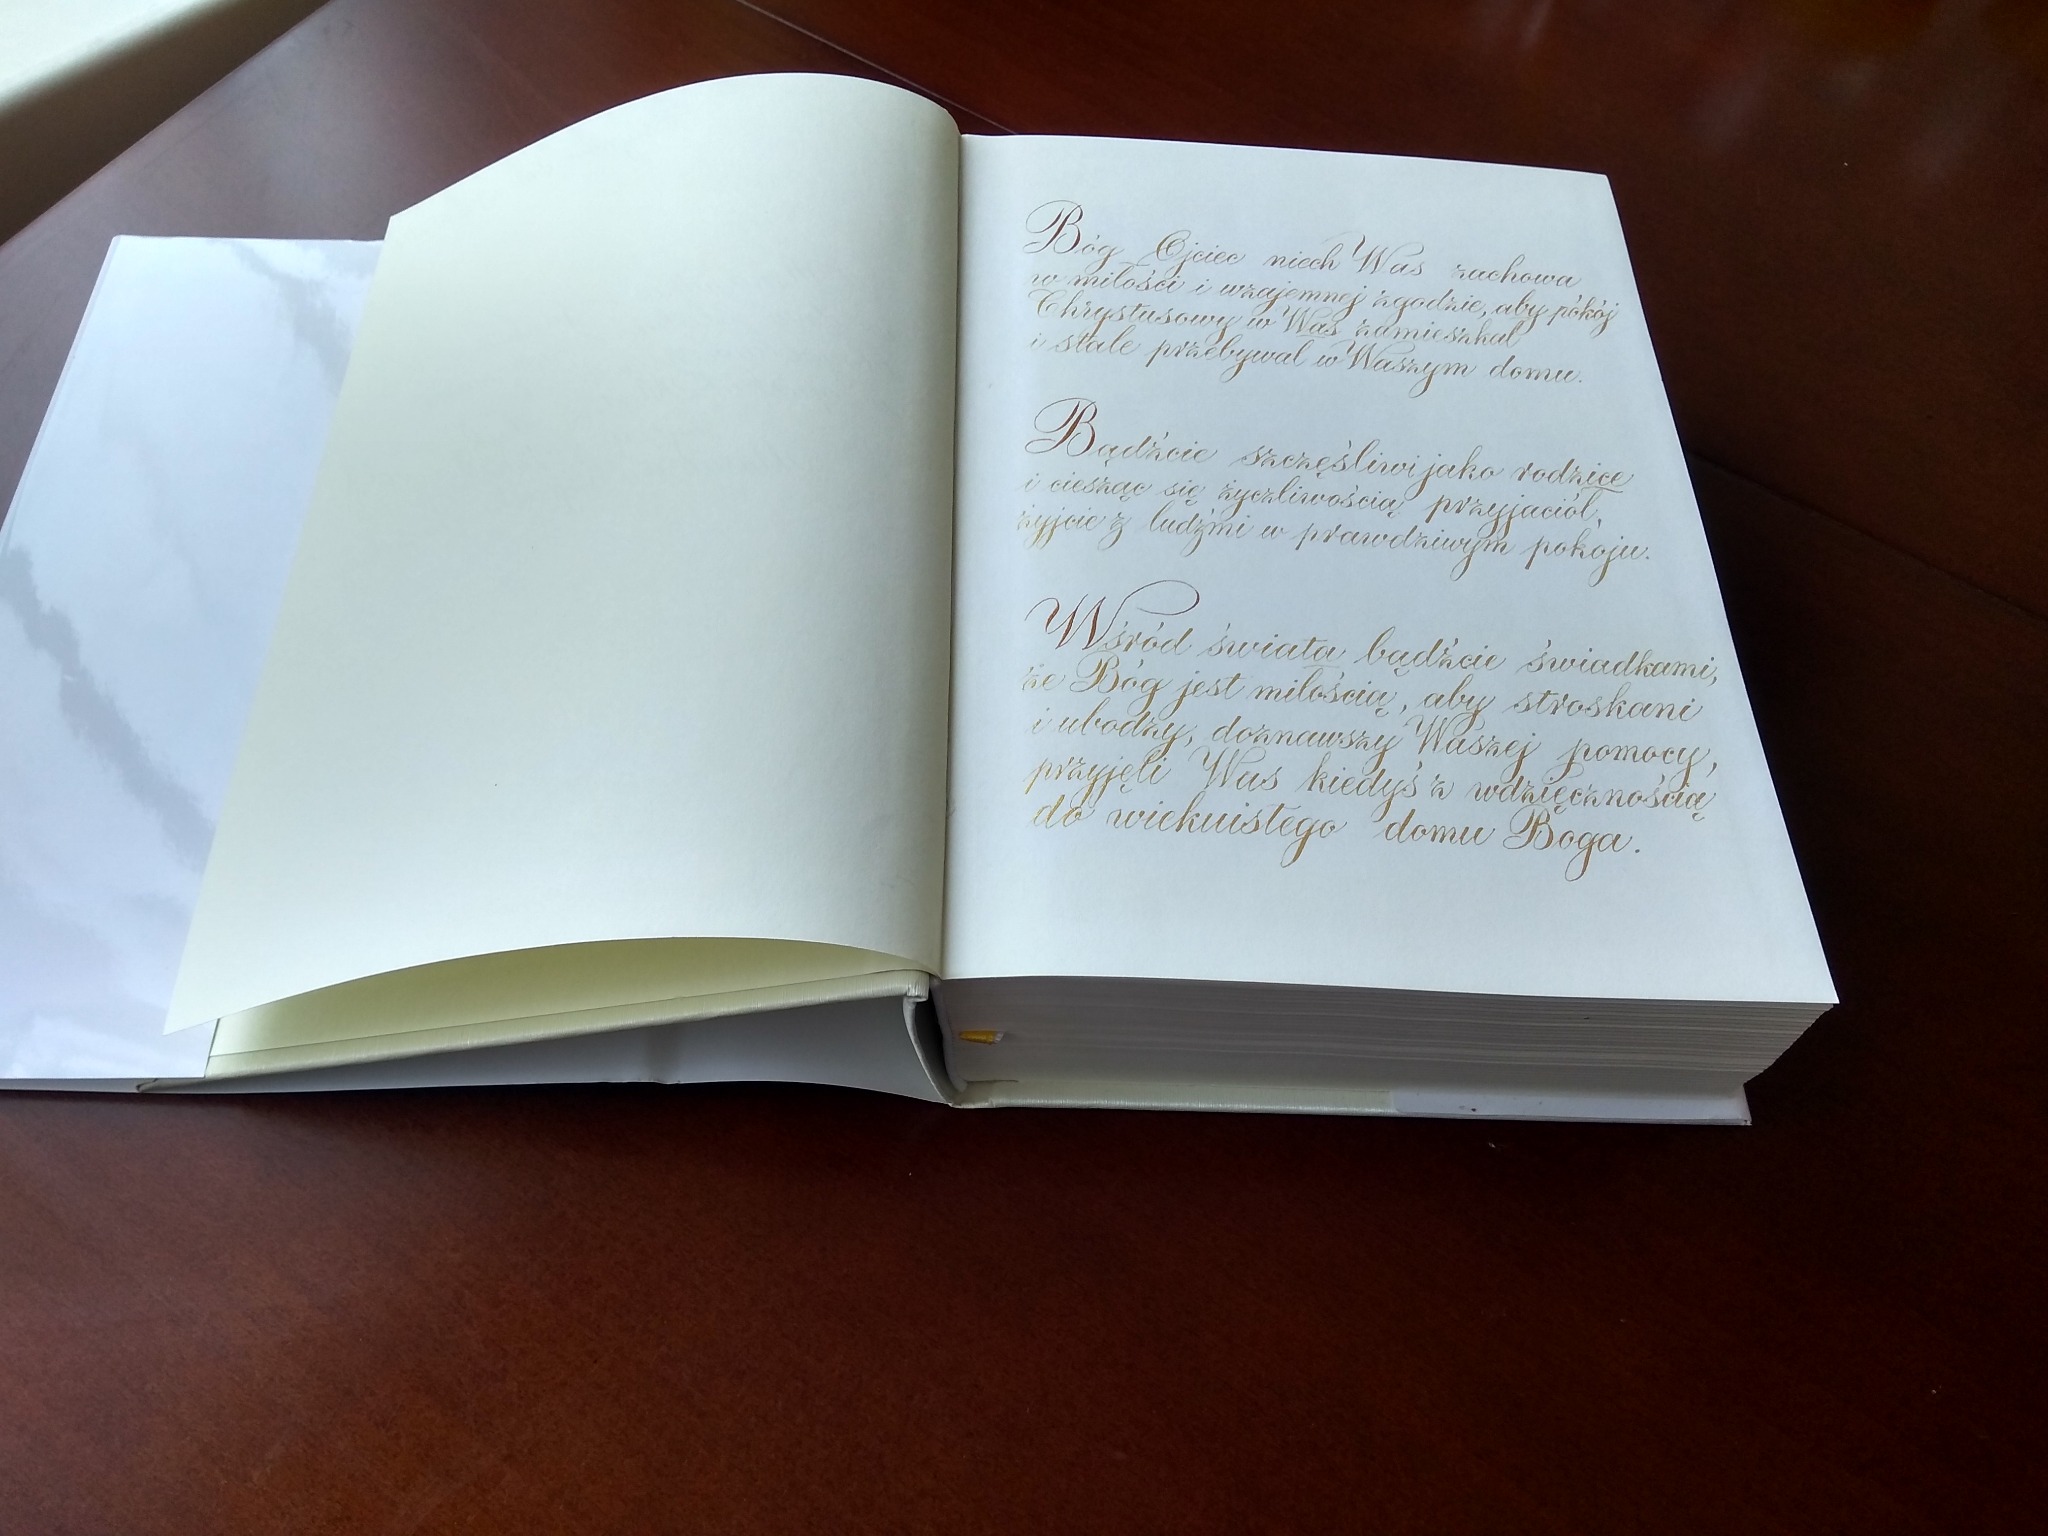 Bóg Ojciec niech Was zachowa
w miłości i wzajemnej zgodzie, aby pokój
Chrystusowy w Was zamieszkał
i stale przebywał w Waszym domu.
Bądźcie szczęśliwi jako rodzice
i ciesząc się życzliwością przyjaciół,
żyjcie z ludźmi w prawdziwym pokoju.
Wśród świata bądźcie świadkami,
że Bóg jest miłością, aby stroskani
i ubodzy, doznawszy Waszej pomocy,
przyjęli Was kiedyś z wdzięcznością
do wiekuistego domu Boga.